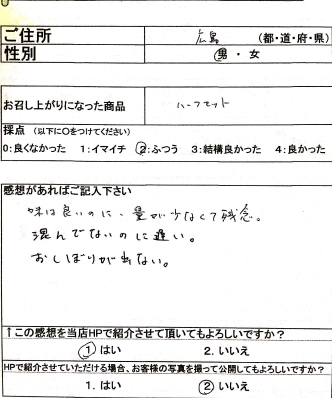 ご住所 広島 (都・道・府・県)
性別 男 ・ 女
お召し上がりになった商品 ハーフセット
採点 (以下に○をつけてください)
0:良くなかった 1:イマイチ 2:ふつう 3:結構良かった 4:良かった
感想があればご記入下さい
味は良いのに、量が少なくて残念。
混んでないのに遅い。
おしぼりが出ない。
↑この感想を当店HPで紹介させて頂いてもよろしいですか?
1 はい 2. いいえ
HPで紹介させていただける場合、お客様の写真を撮って公開してもよろしいですか?
1. はい 2 いいえ